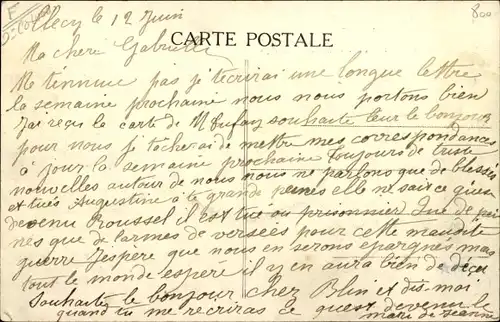 Clecy le 12 Juin
CARTE POSTALE
Ma chere Gabrielle
Me tennuie pas je t'ecrirai une longue lettre
la semaine prochaine nous nous portons bien
J'ai reçu la carte de M Dufay souhaite leur le bonjour
pour nous je tacherai de mettre mes correspondances
à jour la semaine prochaine Toujours de triste
nouvelles autour de nous nous ne parlons que de blesses
et tués Augustine à de grande peines elle ne sait ce quest
devenu Roussel il est tué ou prisonnier Que de pei
nes que de larmes de versées pour cette maudite
guerre J'espere que nous en serons épargnés mais
tout le monde espere il y en aura bien de déçu
Souhaitez le bonjour chez Blin et dis moi
quand tu me recriras ce quest devenu le
mari de Jeanne
800